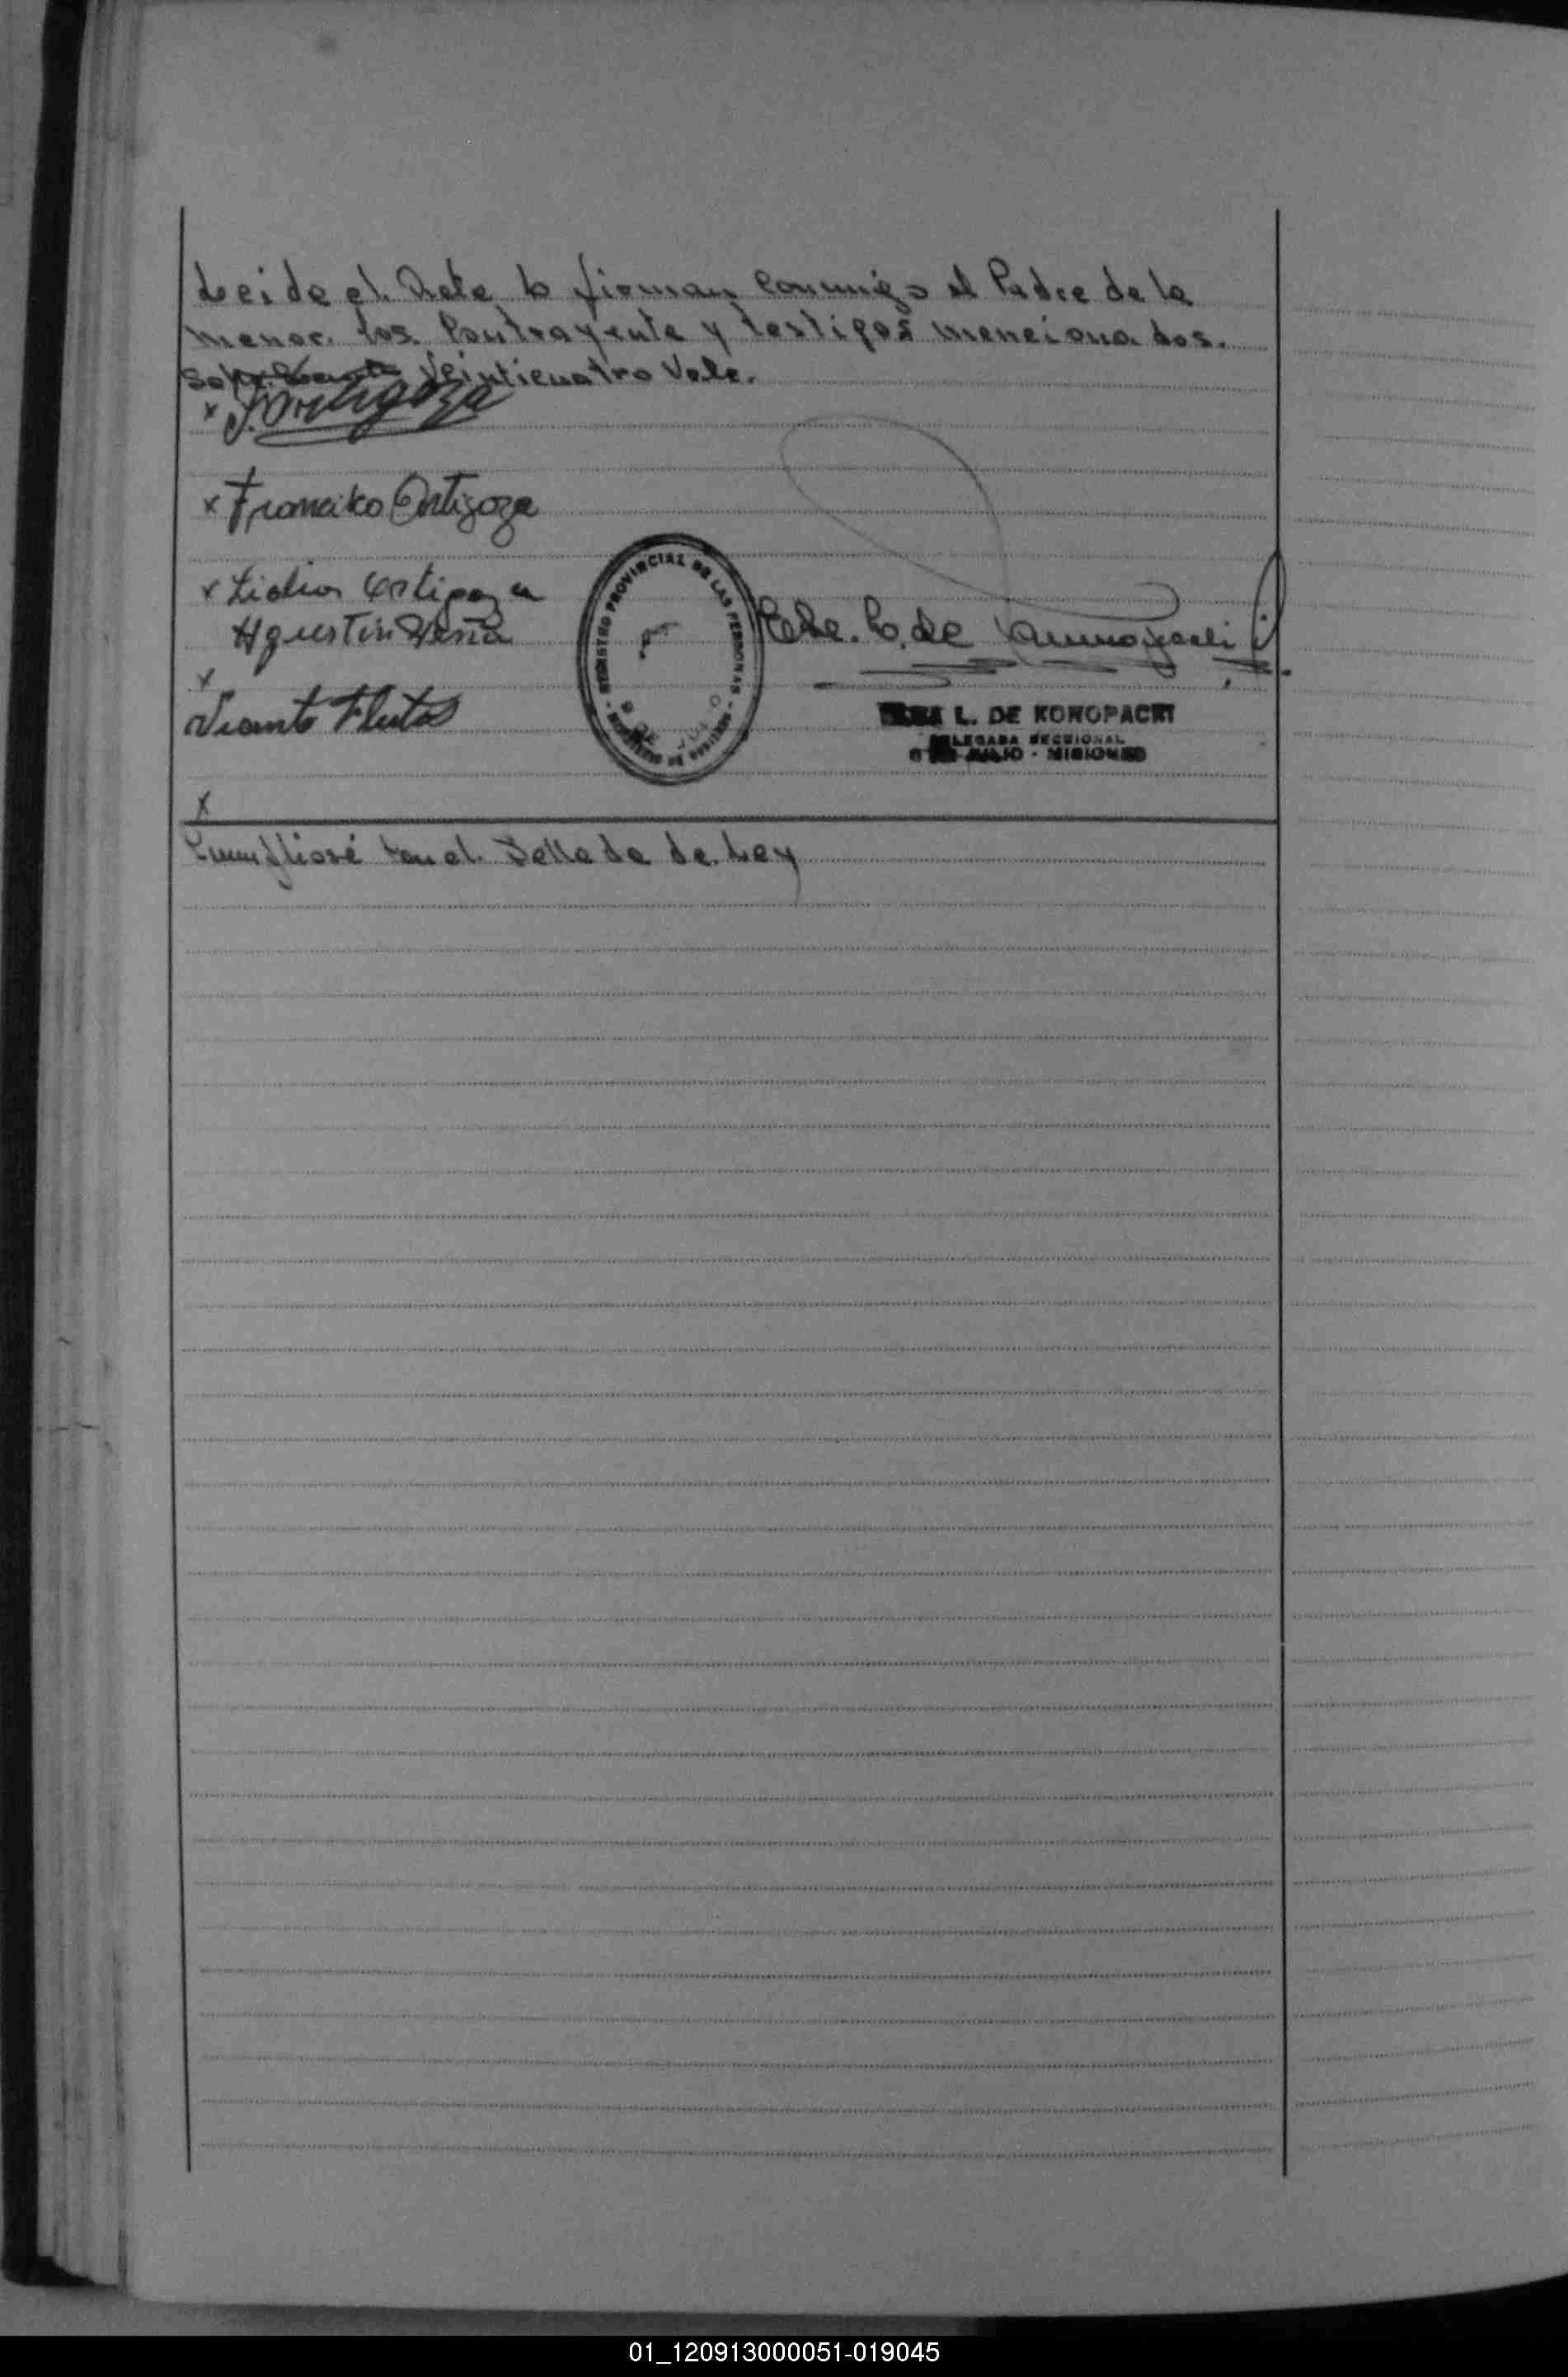 Leida el Acta lo firman conmigo el Padre de la
menor. los Contrayente y testigos menciona dos.
Veinticuatro Vale.
x J. Ortigoza
x Francisko Ortigoza
x Lidia Ortigoza
Agustin
x
Vicente
REGISTRO PROVINCIAL DE LAS PERSONAS
9 DE JULIO
L. DE KONOPACKI
DELEGADA SECCIONAL
9 DE JULIO - MISIONES
x
Cumpliosé con el Sellado de Ley
01_120913000051-019045